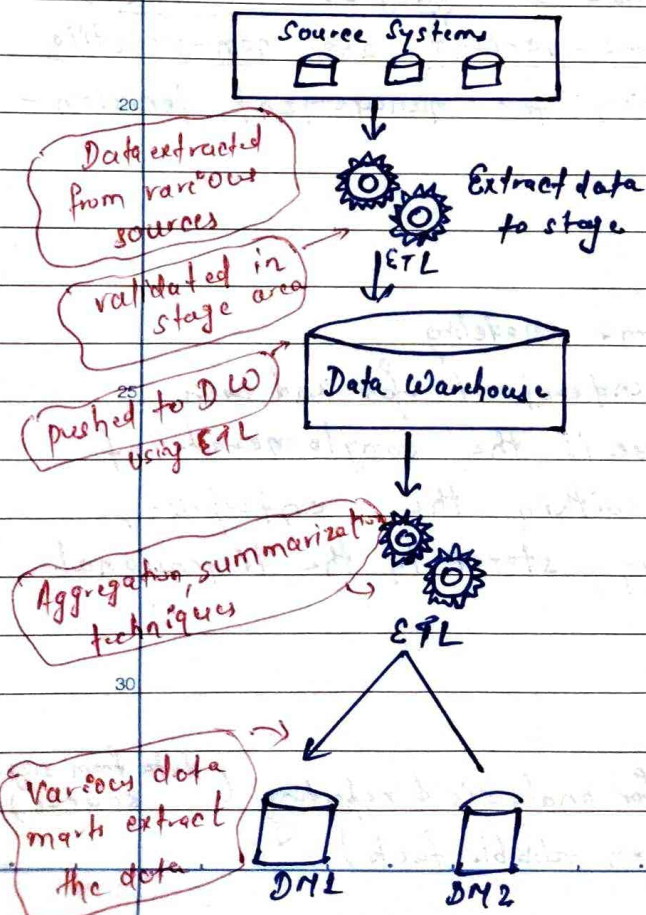 Source Systems
20
Data extracted
from various
sources
Extract data
to stage
ETL
validated in
stage area
25
Data Warehouse
pushed to DW
using ETL
Aggregation, summarization
techniques
ETL
30
Various data
marts extract
the data
DM1
DM2